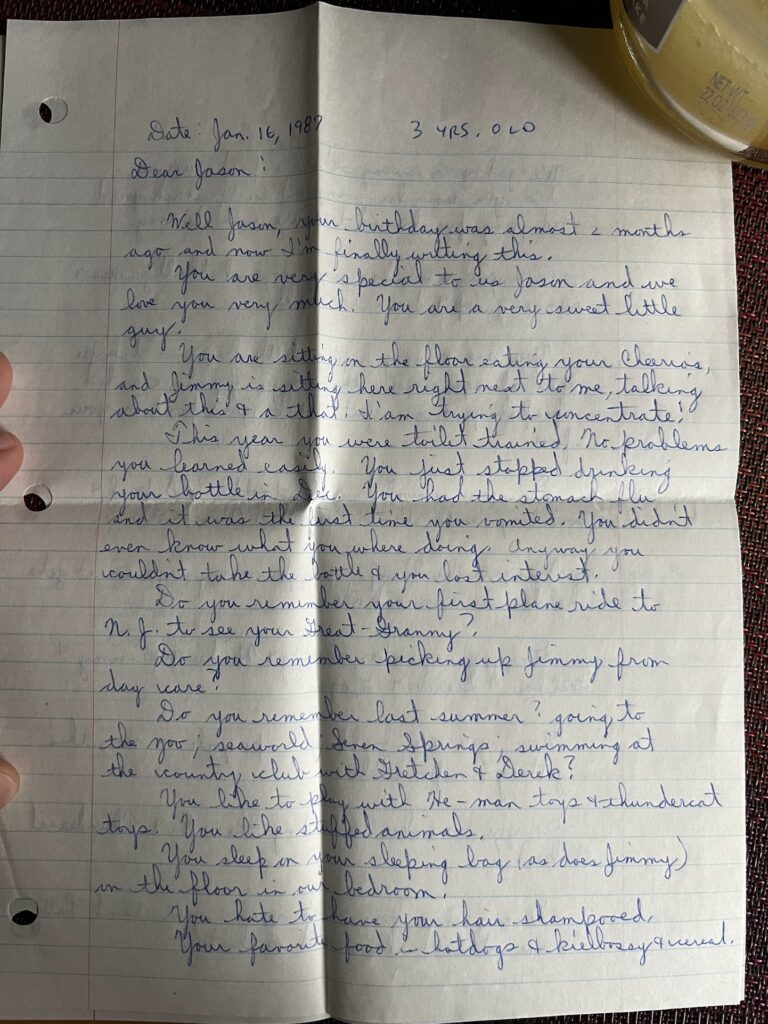 NET WT
22 OZ (623g)
Date: Jan. 16, 1987 3 YRS. OLD
Dear Jason:
Well Jason, your birthday was almost 2 months
ago and now I'm finally writing this.
You are very special to us Jason and we
love you very much. You are a very sweet little
guy.
You are sitting on the floor eating your Cheerios,
and Jimmy is sitting here right next to me, talking
about this & a that. I'am trying to concentrate!
This year you were toilet trained. No problems
you learned easily. You just stopped drinking
your bottle in Dec. You had the stomach flu
and it was the first time you vomited. You didn't
even know what you where doing. Anyway you
couldn't take the bottle & you lost interest.
Do you remember your first plane ride to
N. J. to see your Great-Granny?
Do you remember picking up Jimmy from
day care?
Do you remember last summer? going to
the zoo; seaworld; Seven Springs; swimming at
the country club with Gretchen & Derek?
You like to play with He-man toys & thundercat
toys. You like stuffed animals.
You sleep in your sleeping bag (as does Jimmy)
on the floor in our bedroom.
You hate to have your hair shampooed.
Your favorite food is hotdogs & kielbossy & cereal.